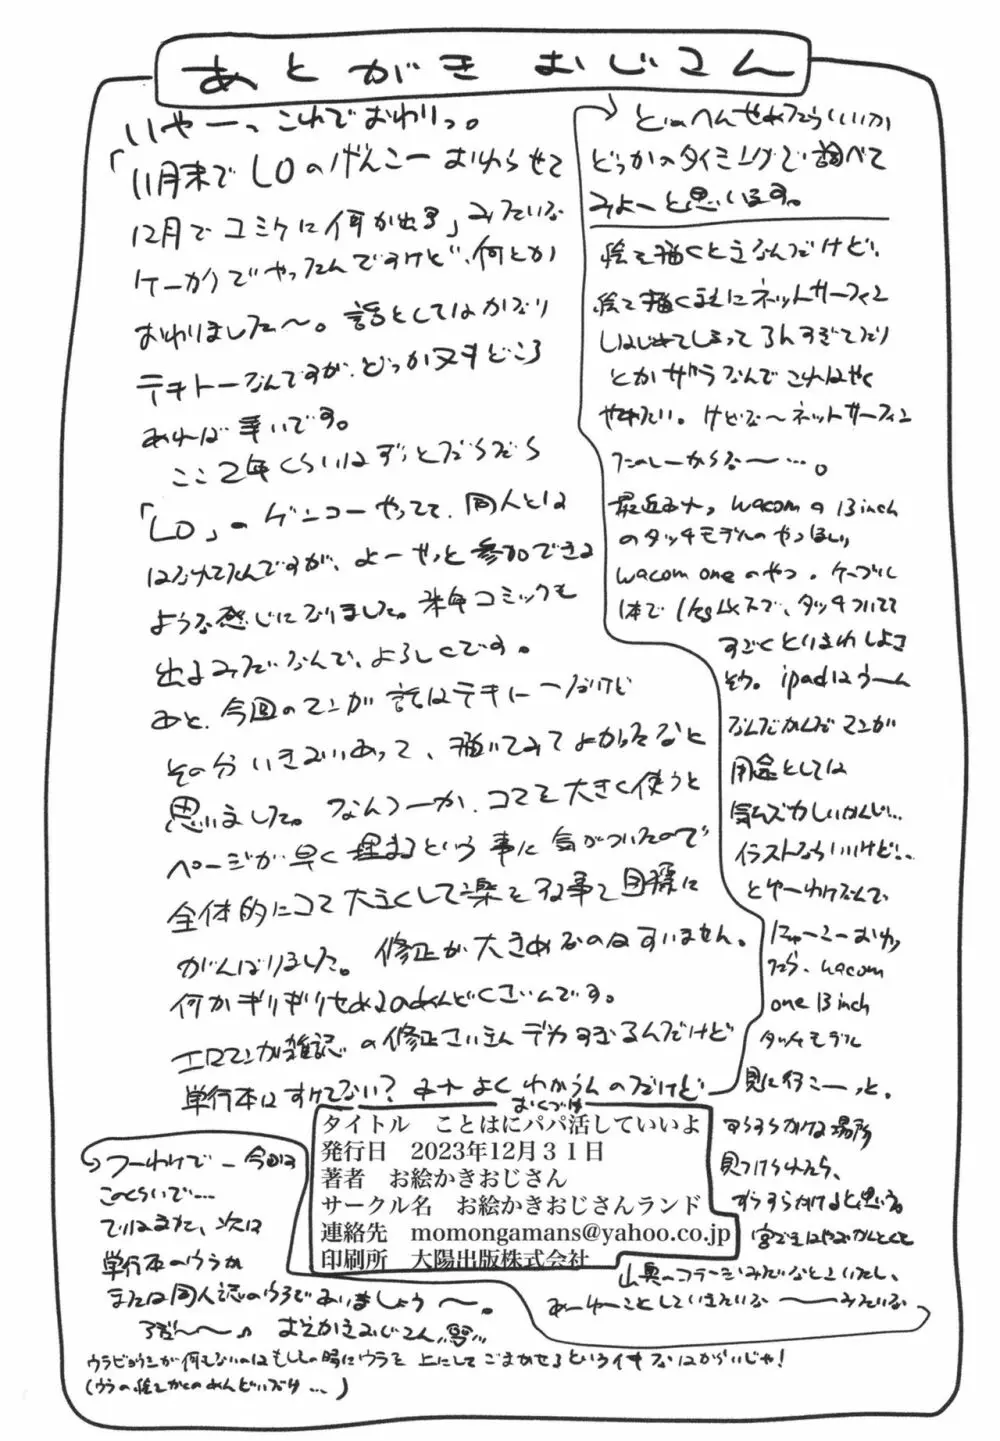 あとがき おじさん
いやーっ これでおわりっ。
「11月末でLOのげんこー おわらせて
12月でコミケに何か出る」みたいな
ケーカクでやってたんですけど、何とか
おわりました〜。話としてはかなり
テキトーなんですが、どっか又すどころ
あれば幸いです。
ここ2年くらいはずっとだらだら
「LO」のゲンコーやってて、同人とは
はなれてたんですが、よーやっと参加できる
ような感じになりました。来年コミックも
出るみたいなんで、よろしくです。
あと、今回のマンガ 話はテキトーだけど
その分いきおいあって、描いてみてよかったなと
思いました。なんつーか、コマを大きく使うと
ページが早く埋まるという事に気がついたので
全体的にコマ大きくして楽をする事を目標に
がんばりました。修正が大きめなのはすいません。
何かギリギリせめるのめんどくさいんです。
エロマンガ雑誌の修正さいきんデカすぎるんだけど
単行本はすけてない? みたいな よくわからんのだけど
どのへんせめたらいいか
どっかのタイミングで調べて
みよーと思います。
絵を描くときなんだけど、
絵を描くまえにネットサーフィン
はじめてしまって るんすぎてたり
とかザラなんで これはやく
やめたい。けどな〜ネットサーフィン
たのしーからな〜…。
最近さ、wacomの13inch
のタッチモデルのやつほしい
wacom oneのやつ。ケーブル
1本で1kg以下で、タッチついてて
すごくとりまわしよさ
そう。ipadはうーん
なんだかんだマンガ
用途としては
気ムズカしいかんじ…
イラストならいいけど…
とゆーわけなんで、
にゅーこーおわっ
たら、wacom
one 13inch
タッチモデル
見に行こーっと。
すらすらかける場所
見つけられたら、
すらすらかけると思いる。
宮でもはやおかんとくも
山奥のコテージみたいなとこいたし、
あーゆーことしていきたいな〜〜みたいな
つーわけで 今回は
このくらいで…
ではまた、次は
単行本のウラか
または同人誌のウラであいましょう〜。
るぜ〜〜♪ おえかきおじさん
ウラビョウシが何もないのはもしもの時にウラを上にしてごまかせるというイキなはからいじゃ!
(ウラの絵をかくのめんどいだけ…)
おくづけ
タイトル ことはにパパ活していいよ
発行日 2023年12月31日
著者 お絵かきおじさん
サークル名 お絵かきおじさんランド
連絡先 momongamans@yahoo.co.jp
印刷所 大陽出版株式会社